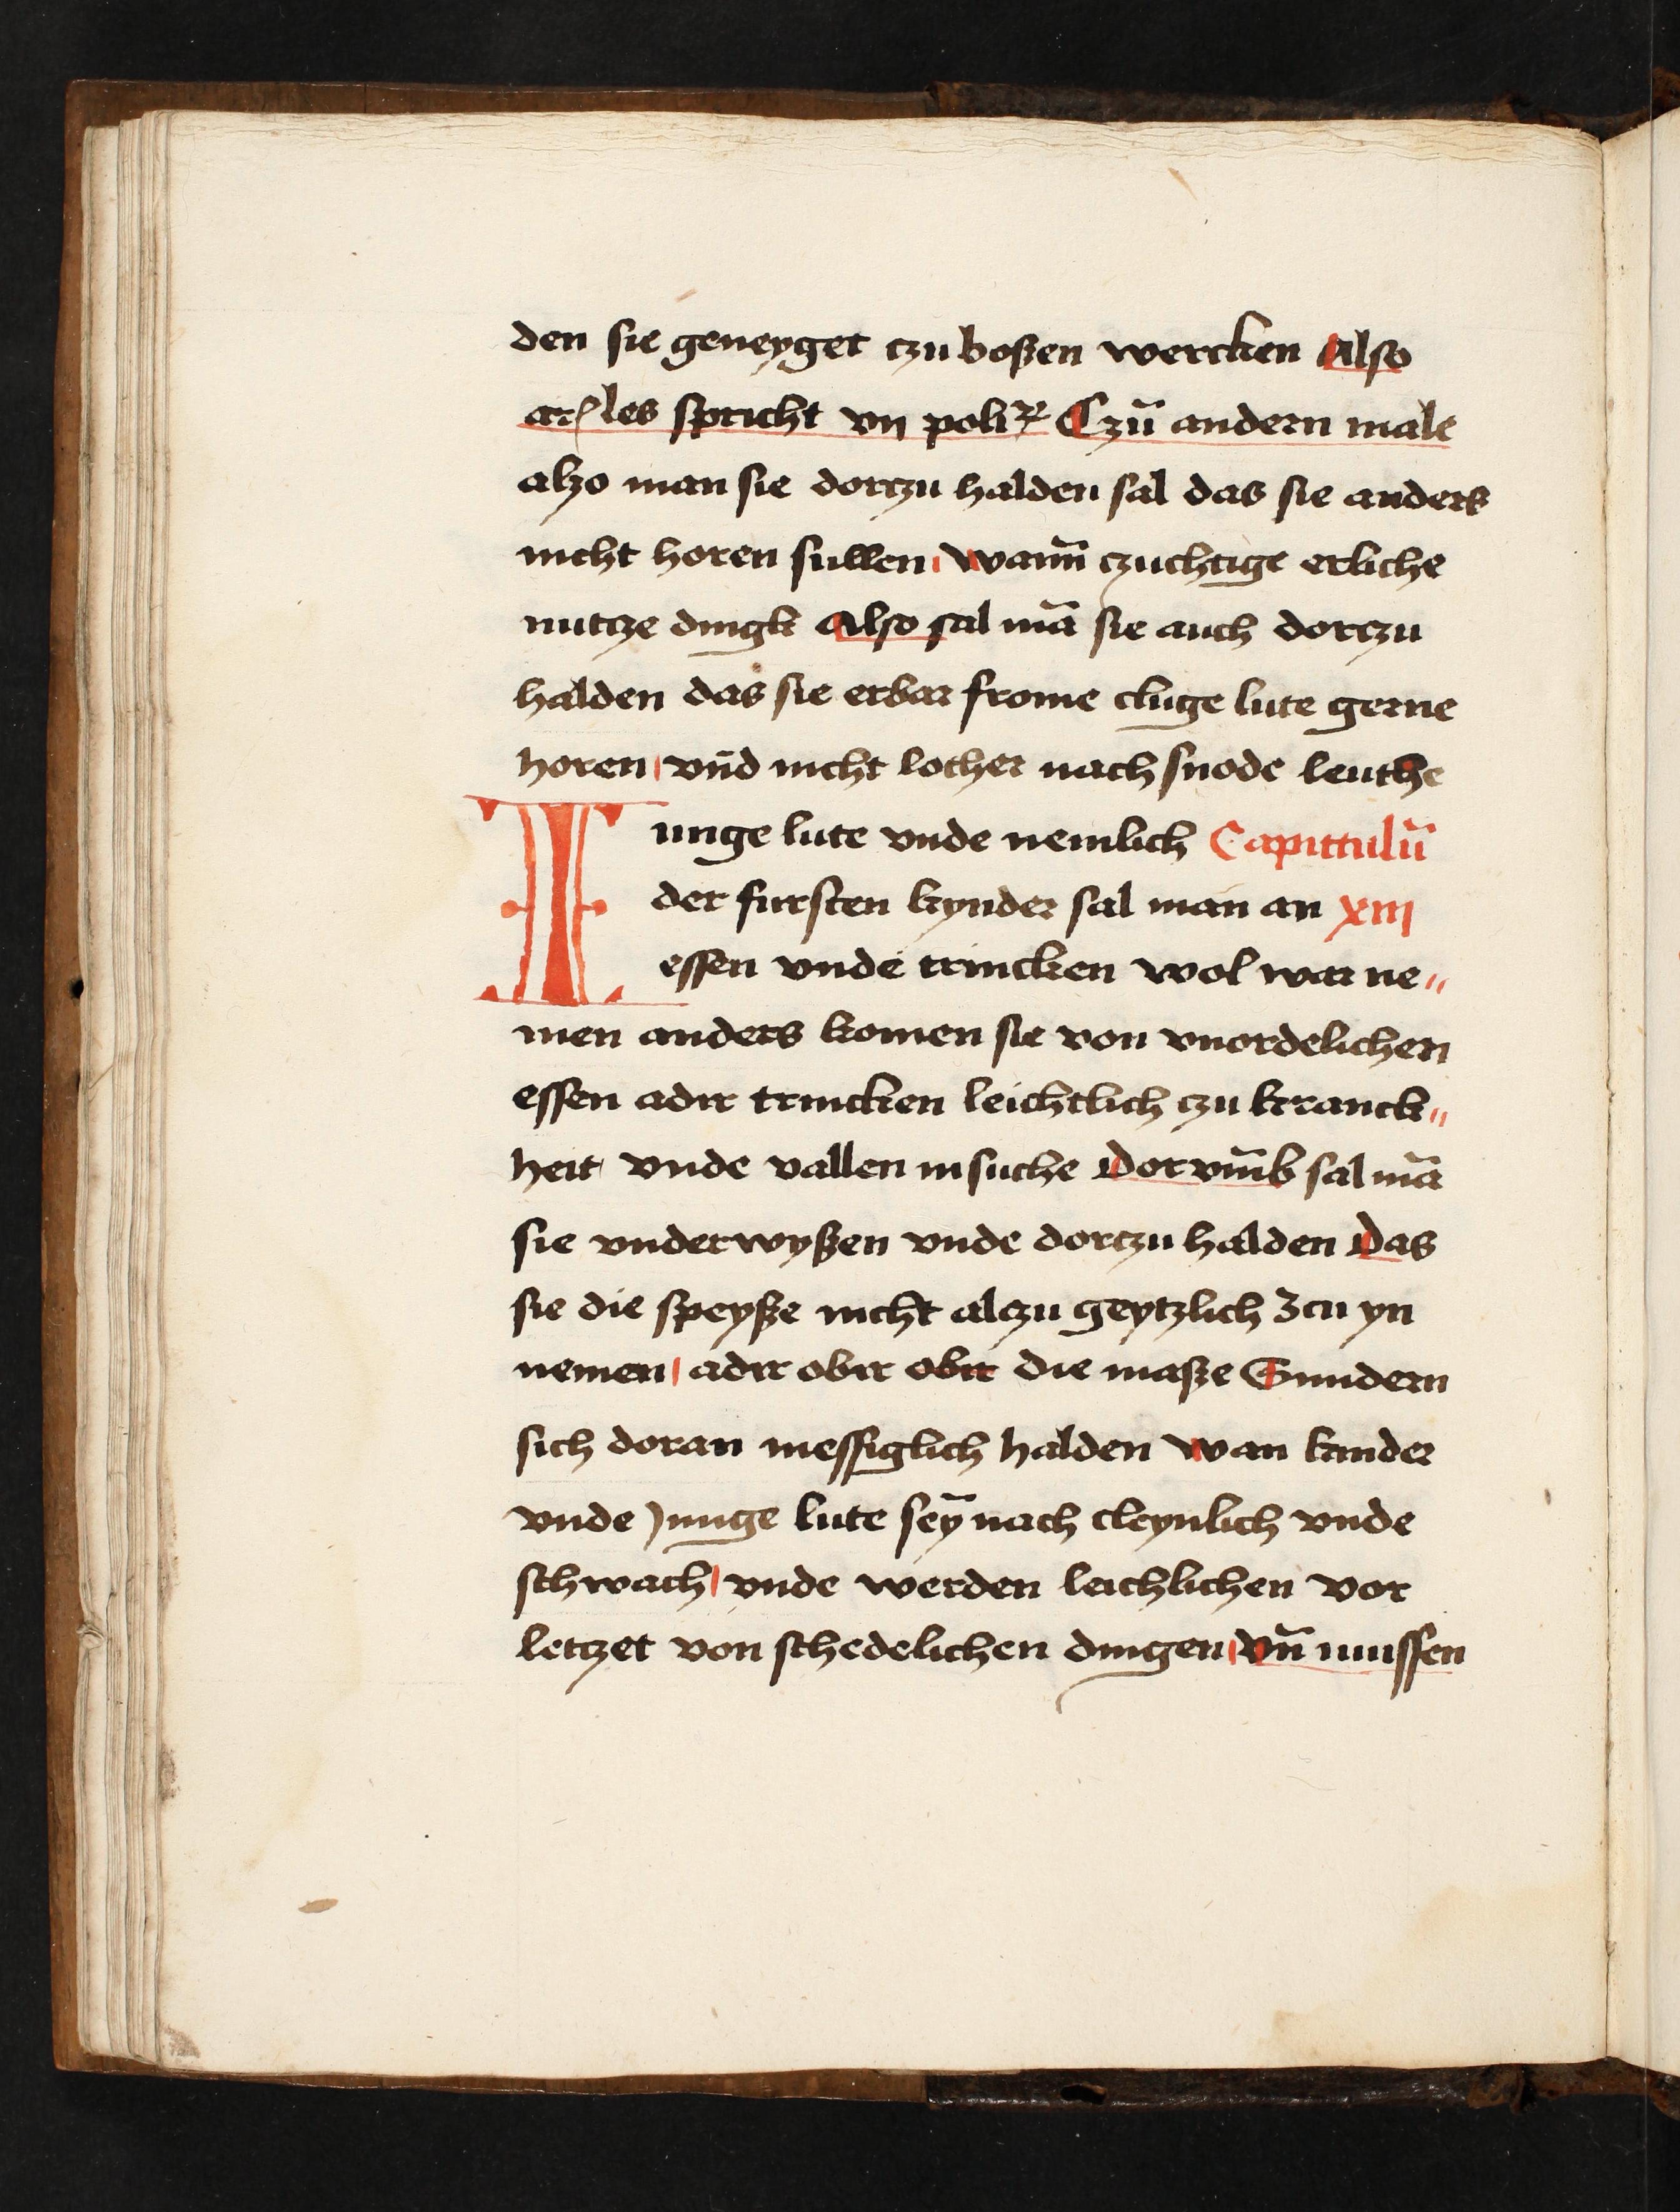 den sie geneyget czu boßen wercken Also
ar(les spricht vij poliꝝ Czū andern male
alzo man sie dorczu halden sal das sie anders
nicht horen sullen wann̄ czuchtige erliche
nutcze dingk Also sal mā sie auch dorczu
halden das sie erbar frome cluge lute gerne
horen vn̄d nicht locher nach snode leuthe
Iunge lute vnde nemlich Capittulū
der fursten kynder sal man an xiij
essen vnde trincken wol war ne„
men anders komen sie von vnordelichen
essen adir trincken leichtlich czu kranck„
heit vnde vallen in suche Dor vm̄b sal mā
sie vnderwyßen vnde dorczu halden Das
sie die speyße nicht alczu geytzlich zcu yn
nemen adir obir obir die maße Sundern
sich doran messiglich halden wan kinder
vnde Junge lute seȳ nach cleynlich vnde
schwach vnde werden leichlichen vor
letczet von schedelichen dingen vn̄ mussen